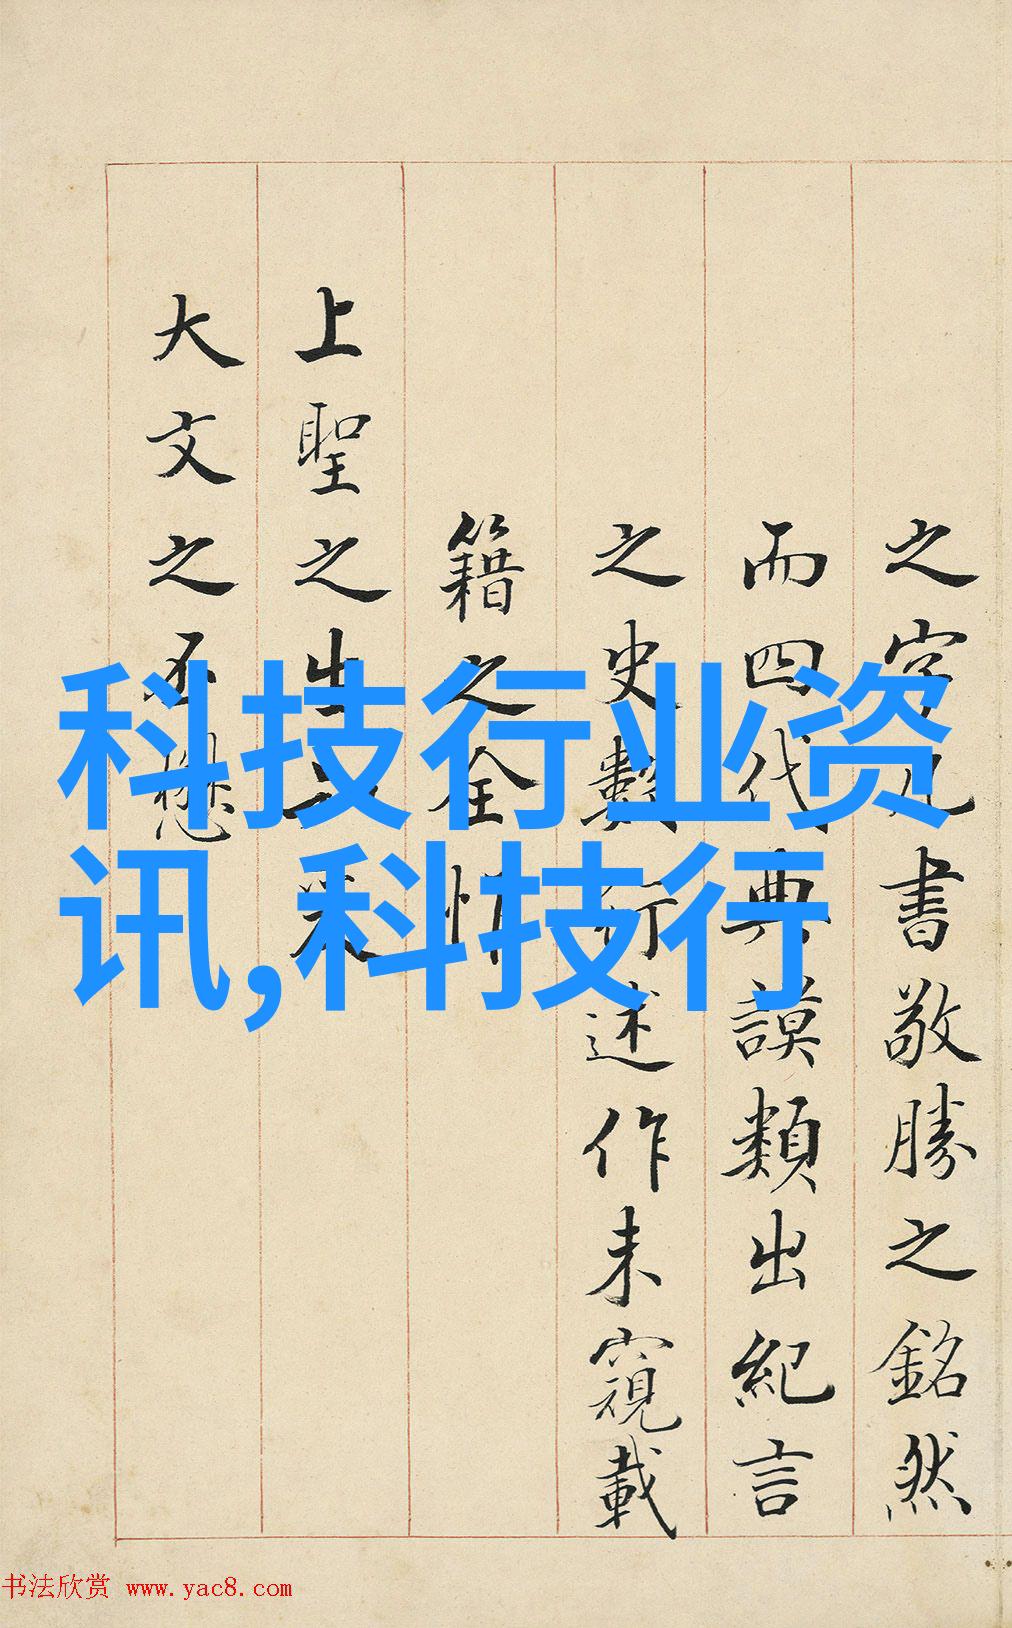 之字書敬勝之銘然
而四代典謨類出紀言
之史數行述作未窺載
籍之全惟
上聖之出
大文之丕懋
科技行业资
讯,科技行
书法欣赏 www.yac8.com